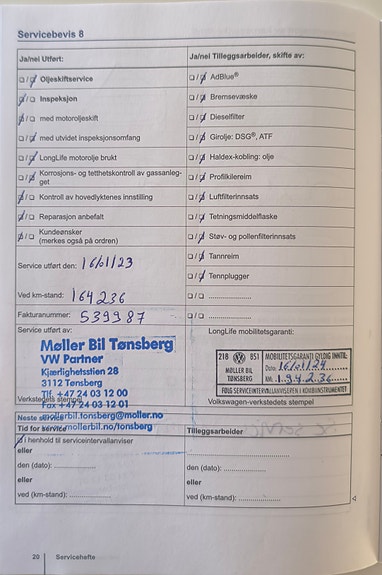 Servicebevis 8
Ja/nei Utført:
Ja/nei Tilleggsarbeider, skifte av:
Oljeskiftservice
AdBlue®
Inspeksjon
Bremsevæske
med motoroljeskift
Dieselfilter
med utvidet inspeksjonsomfang
Girolje: DSG®, ATF
LongLife motorolje brukt
Haldex-kobling: olje
Korrosjons- og tetthetskontroll av gassanleg-
get
Profilkilereim
Kontroll av hovedlyktenes innstilling
Luftfilterinnsats
Reparasjon anbefalt
Tetningsmiddelflaske
Kundeønsker
(merkes også på ordren)
Støv- og pollenfilterinnsats
Tannreim
Service utført den: 16/01/23
Tennplugger
Ved km-stand: 164236
Fakturanummer: 539987
Service utført av:
LongLife mobilitetsgaranti:
Møller Bil Tønsberg
VW Partner
Kjærlighetsstien 28
3112 Tønsberg
Tlf. +47 24 03 12 00
Fax +47 24 03 12 01
mollerbil.tonsberg@moller.no
mollerbil.no/tonsberg
218 VW 851
MØLLER BIL
TØNSBERG
MOBILITETSGARANTI GYLDIG INNTIL:
Dato: 16/01/24
KM. 194236
FØLG SERVICEINTERVALLANVISEREN I KOMBIINSTRUMENTET
Verkstedets stempel
Volkswagen-verkstedets stempel
Neste service
Tid for service
Tilleggsarbeider
i henhold til serviceintervallanviser
eller
den (dato):
eller
ved (km-stand):
eller
den (dato):
eller
ved (km-stand):
20 Servicehefte